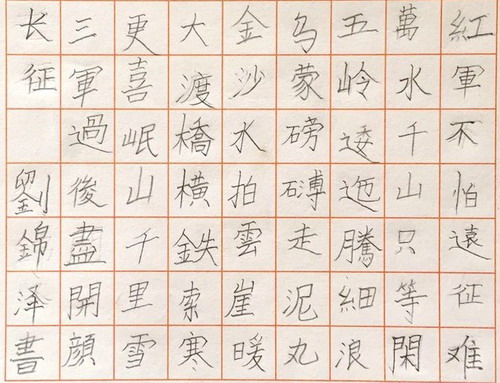 紅軍不怕遠征难
萬水千山只等閑
五岭逶迤騰細浪
乌蒙磅礴走泥丸
金沙水拍雲崖暖
大渡橋横鉄索寒
更喜岷山千里雪
三軍過後盡開顔
长征 劉錦泽書